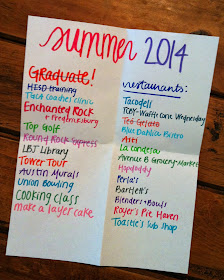 summer 2014
Graduate!
HISD training
TGCA Coaches Clinic
Enchanted Rock
+ Fredericksburg
Top Golf
Round Rock Express
LBJ Library
Tower Tour
Austin Murals
Union Bowling
COOKING CLASS
make a layer cake
restaurants:
Tacodeli
TCBY-Waffle Cone Wednesday
Teo Gelato
Blue Dahlia Bistro
Asti
La Condesa
Avenue B Grocery+Market
Hopdoddy
Perla's
Bartlett's
Blenders+Bowls
Royer's Pie Haven
Toastie's Sub Shop